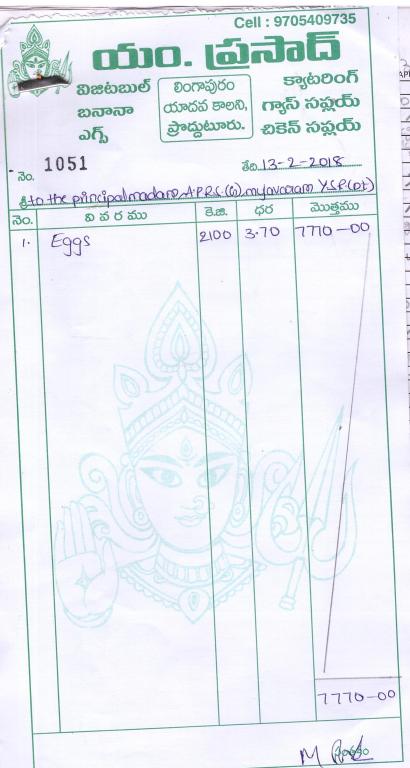 Cell : 9705409735
యం. ప్రసాద్
విజిటబుల్
బనానా
ఎగ్స్
లింగాపురం
యాదవ కాలని,
ప్రొద్దుటూరు.
క్యాటరింగ్
గ్యాస్ సప్లయ్
చికెన్ సప్లయ్
నెం. 1051
తేది 13-2-2018
శ్రీ to the principal madam, A.P.R.S. (G) Y.S.R (Dt)
నెం. వివరము కె.జి. ధర మొత్తము
1. Eggs 2100 3.70 7770-00
7770-00
M